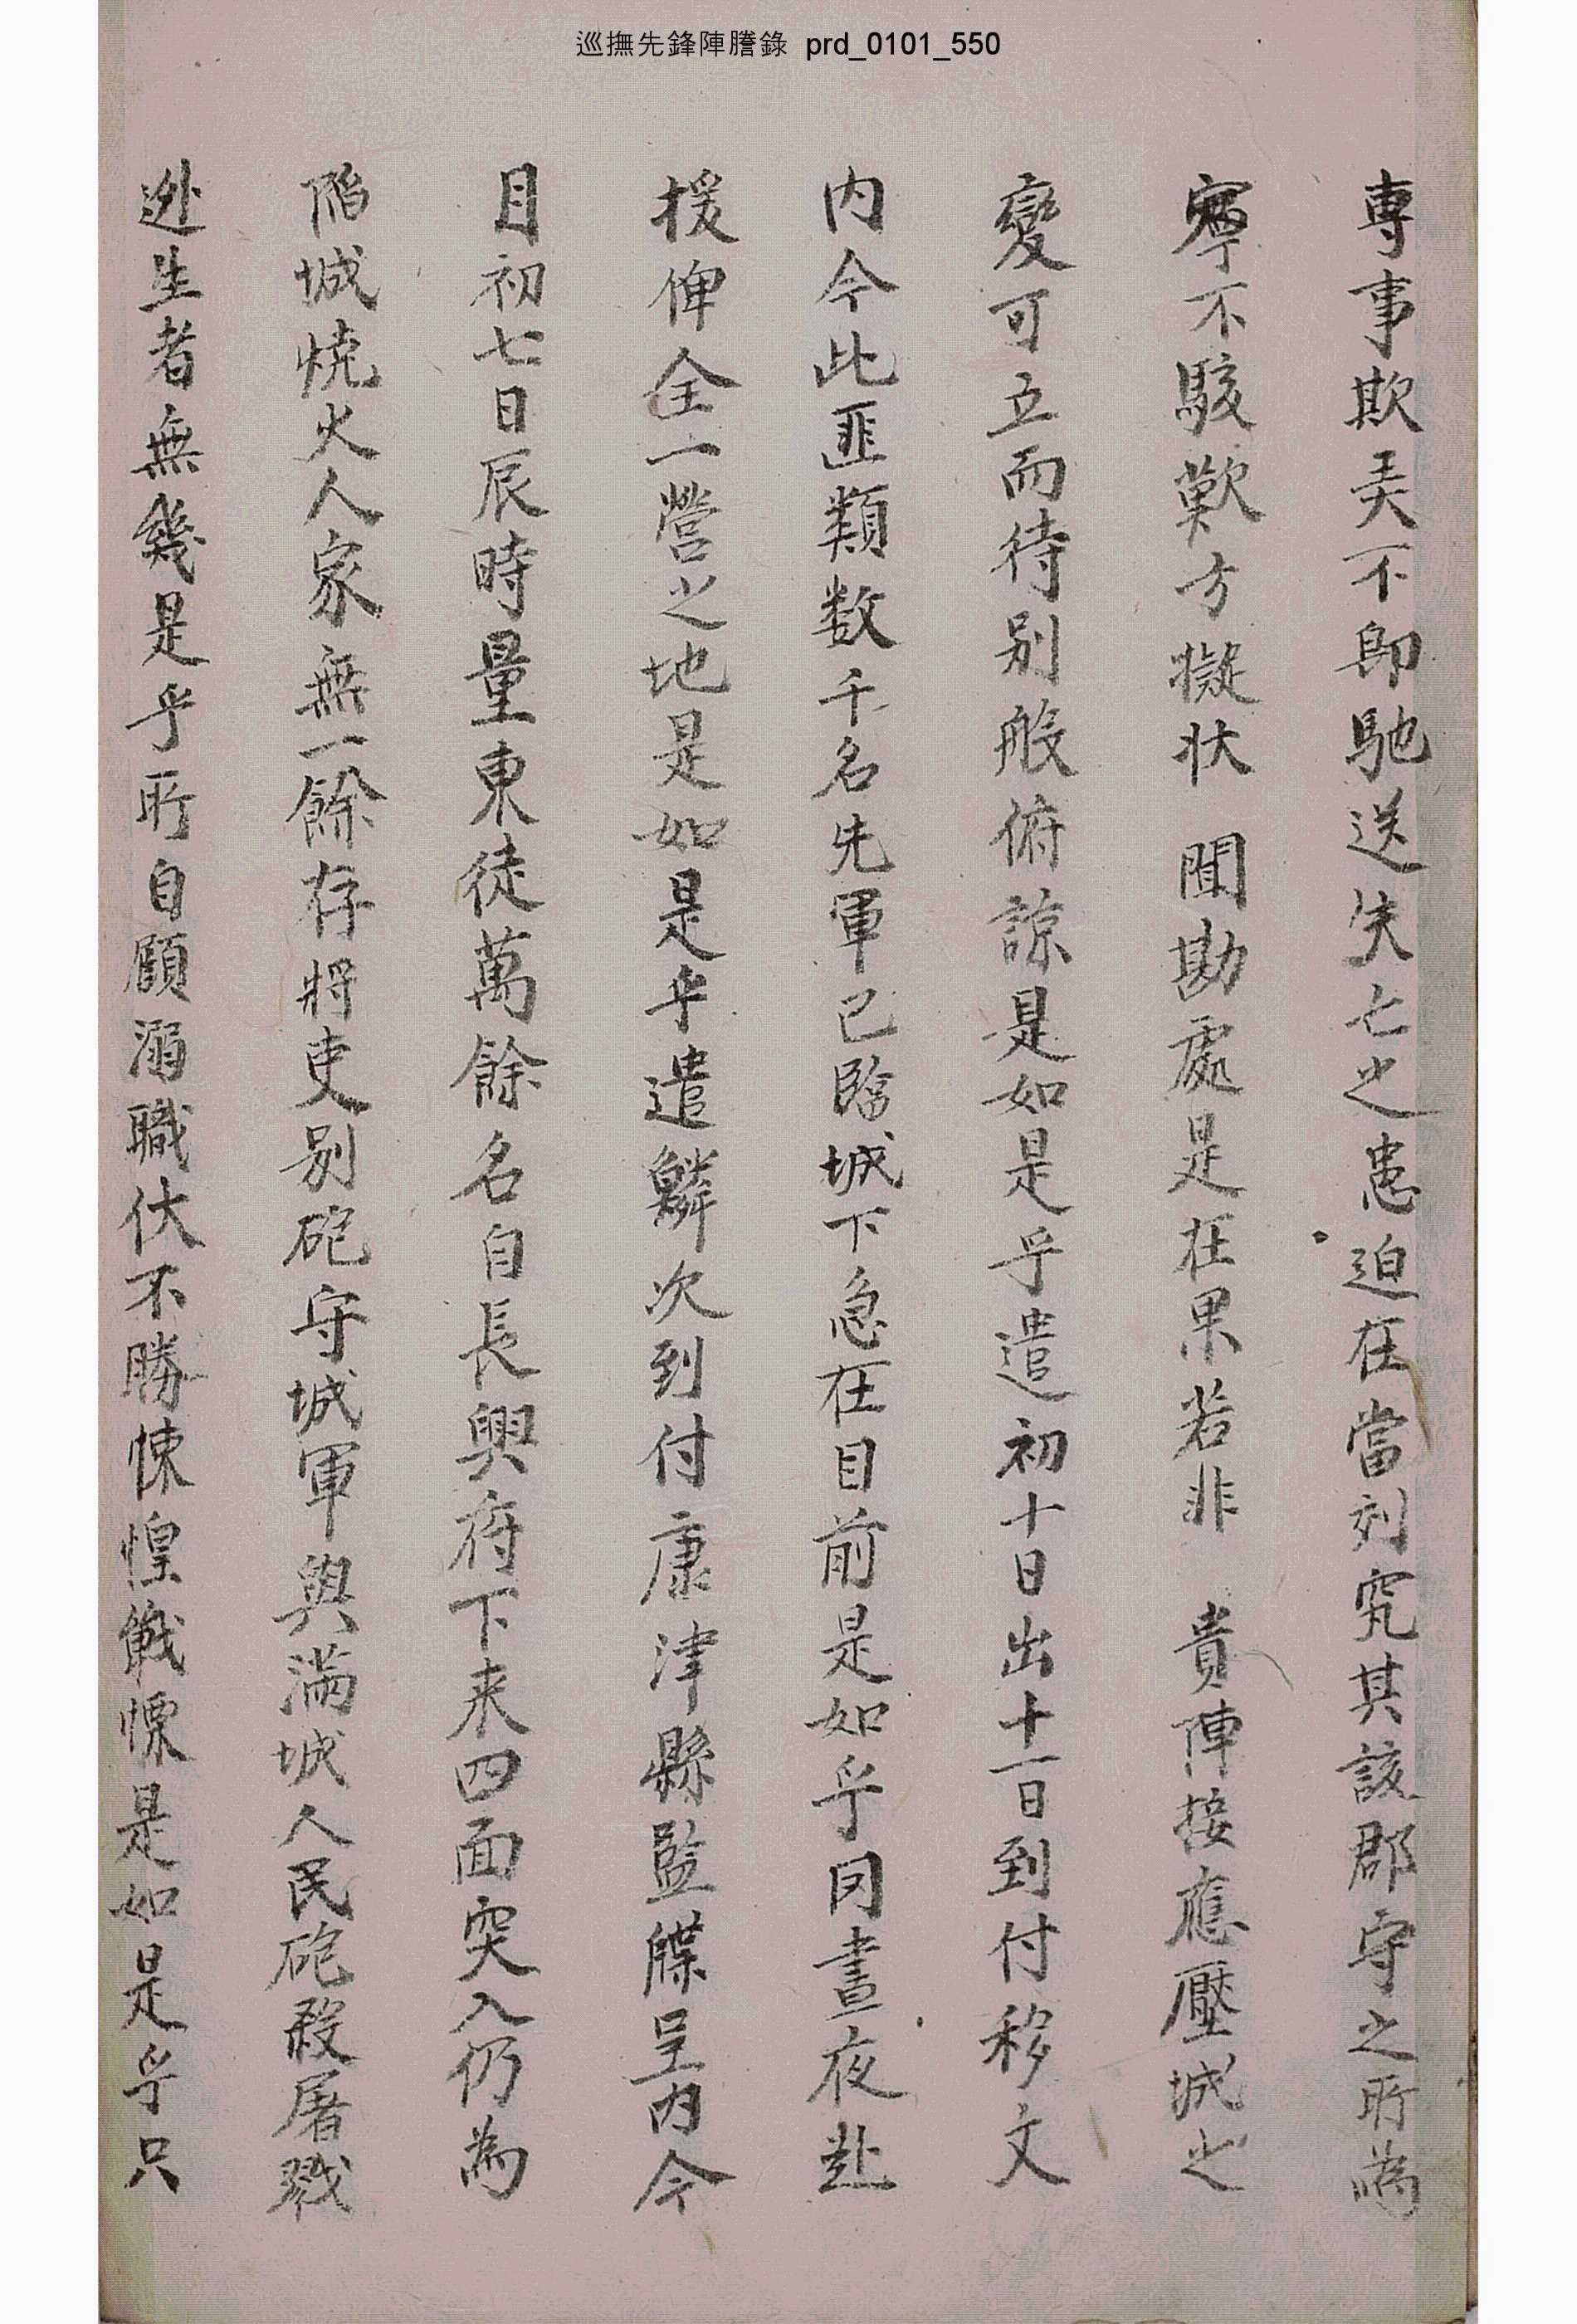 巡撫先鋒陣謄錄 prd_0101_550
專事欺弄不卽馳送失亡之患迫在當刻究其該郡守之所為
寧不駭歎方擬狀 聞勘處是在果若非 貴陣接應壓城之
變可立而待別般俯諒是如是乎遣初十日出十一日到付移文
内今此匪類数千名先軍已臨城下急在目前是如乎罔晝夜赴
援俾全一營之地是如是乎遣鱗次到付康津縣監牒呈内今
月初七日辰時量東徒萬餘名自長興府下来四面突入仍為
陷城燒火人家無一餘存將吏別砲守城軍與滿城人民砲殺屠戮
迯生者無幾是乎所自顧溺職伏不勝悚惶戰慄是如是乎只